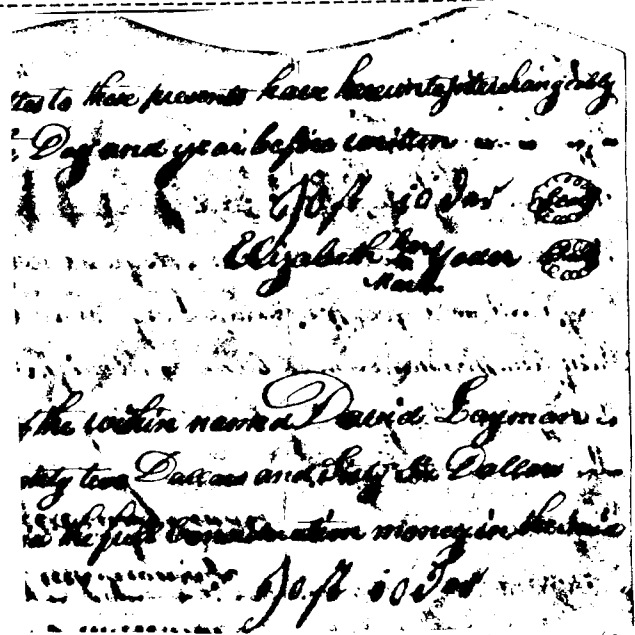 to these presents have hereunto interchangeably
Day and year before written
Jost ioder Seal
Elizabeth her Yoder Seal
Mark
the within named David Layman
two Dollars and Sixty Six Dollars
the full Consideration money in the
Jost ioder